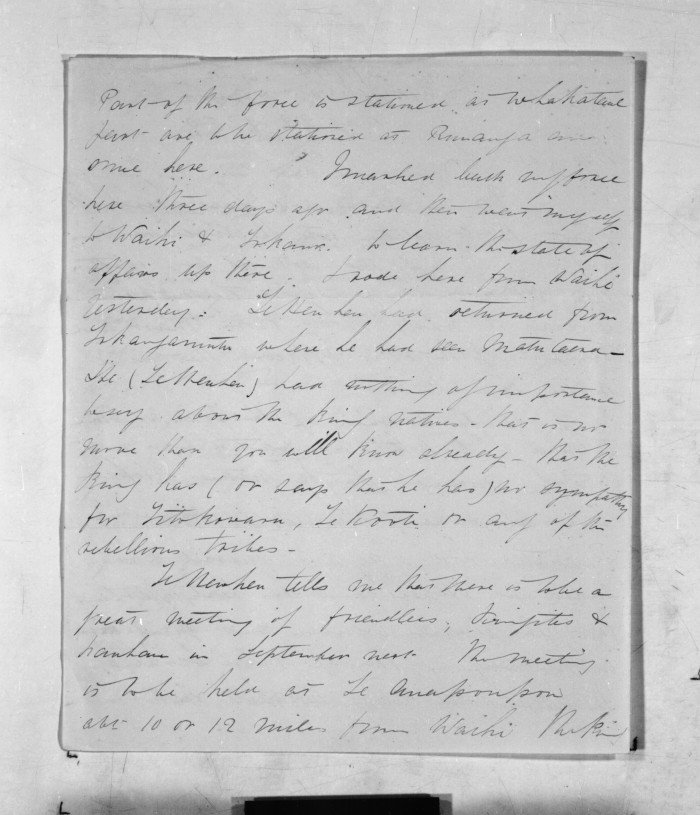 Part of the force is stationed at Whakatane
part are to be stationed at Runanga and
some here. I marched back my force
here three days ago and then went myself
to Waihi & Tokanu to learn the state of
affairs up there. I rode here from Waihi
yesterday. Te Heuheu had returned from
Tokangamutu where he had seen Matutaera
He (Te Heuheu) had nothing of importance
to say about the King natives - that is no
more than you will know already - that the
King has (or says that he has) no sympathy
for Titokowaru, Te Kooti or any of the
rebellious tribes -
Te Heuheu tells me that there is to be a
great meeting of friendlies, Kingites &
Hauhaus in September next. The meeting
is to be held at Te
abt 10 or 12 miles from Waihi The